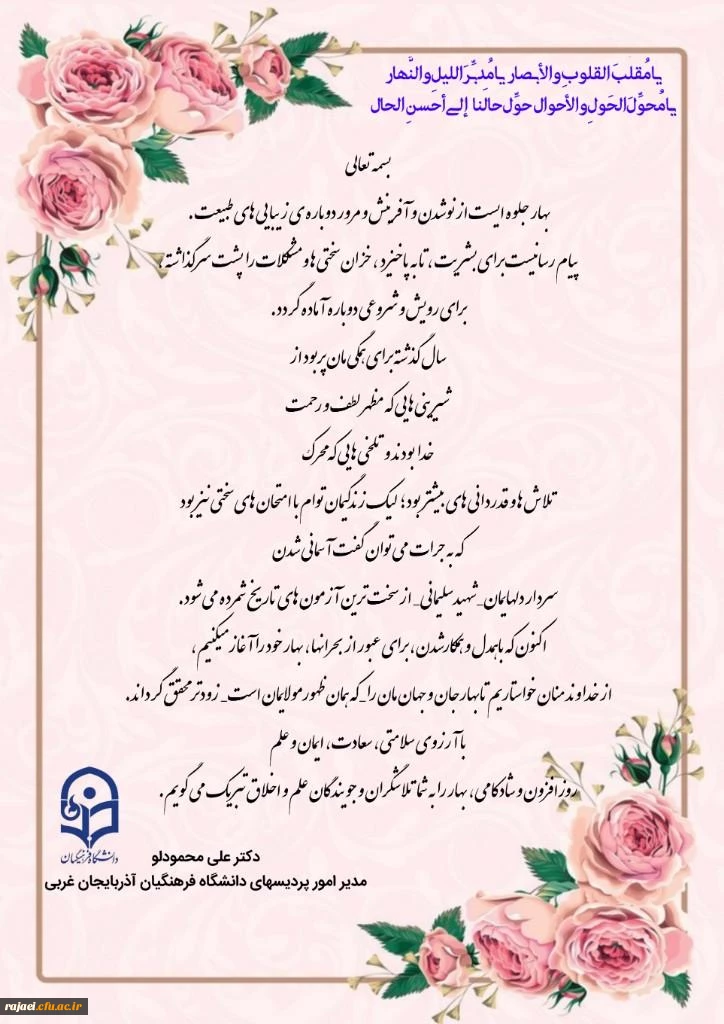 یا مُقلبَ القلوبِ والأبصار یا مُدبِّرَ اللیلِ والنَّهار
یا مُحوِّلَ الحَولِ والأحوال حوِّل حالنا إلی أحسنِ الحال
بسمه تعالی
بهار جلوه ایست از نو شدن و آفرینش و مرور دوباره ی زیبایی های طبیعت .
پیام رسانیست برای بشریت ، تا به پا خیزد ، خزان سختی ها و مشکلات را پشت سر گذاشته ،
برای رویش و شروعی دوباره آماده گردد .
سال گذشته برای همگی مان پر بود از
شیرینی هایی که مظهر لطف و رحمت
خدا بودند و تلخی هایی که محرک
تلاش ها و قدردانی های بیشتر بود ؛ لیک زندگیمان توام با امتحان های سختی نیز بود
که به جرات می توان گفت آسمانی شدن
سردار دلهایمان_شهید سلیمانی_ از سخت ترین آزمون های تاریخ شمرده می شود .
اکنون که با همدل و همکار شدن ، برای عبور از بحرانها ، بهار خود را آغاز میکنیم ،
از خداوند منان خواستاریم تا بهار جان و جهان مان را_که همان ظهور مولایمان است_ زودتر محقق گرداند .
با آرزوی سلامتی ، سعادت ، ایمان و علم
روزافزون و شادکامی ، بهار را به شما تلاشگران و جویندگان علم و اخلاق تبریک می گویم .
دانشگاه فرهنگیان
دکتر علی محمودلو
مدیر امور پردیسهای دانشگاه فرهنگیان آذربایجان غربی
rajaei.cfu.ac.ir